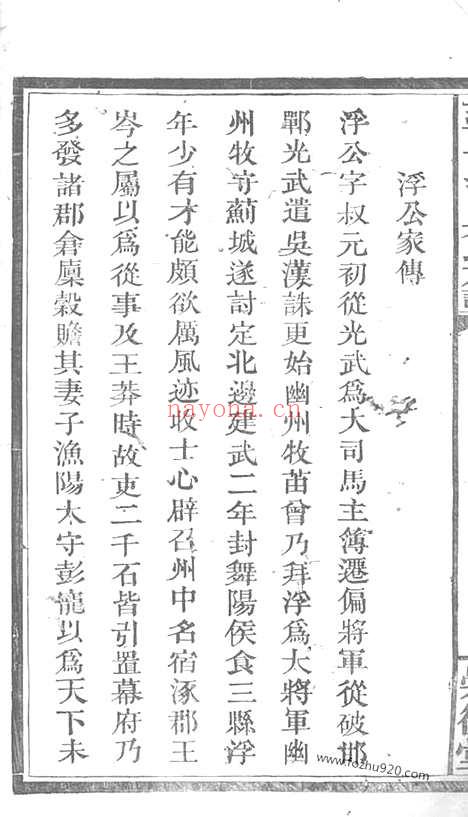 浮公家傳
浮公字叔元初從光武爲大司馬主簿遷偏將軍從破邯
鄲光武遣吳漢誅更始幽州牧苗曾乃拜浮爲大將軍幽
州牧守薊城遂討定北邊建武二年封舞陽侯食三縣浮
年少有才能頗欲厲風迹收士心辟召州中名宿涿郡王
岑之屬以爲從事及王莽時故吏二千石皆引置幕府乃
多發諸郡倉廩穀贍其妻子漁陽太守彭寵以爲天下未
nayona.cn
www.fozhu920.com